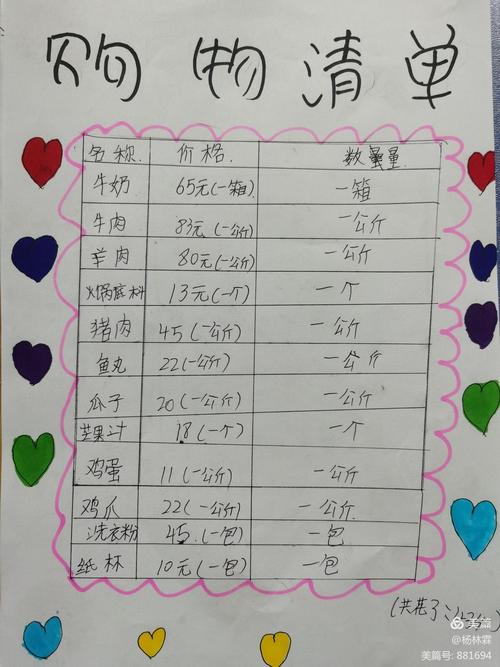 购物清单
名称 价格 数量
牛奶 65元(一箱) 一箱
牛肉 83元(一公斤) 一公斤
羊肉 80元(一公斤) 一公斤
火锅底料 13元(一个) 一个
猪肉 45(一公斤) 一公斤
鱼丸 22(一公斤) 一公斤
瓜子 20(一公斤) 一公斤
芒果汁 18(一个) 一个
鸡蛋 11(一公斤) 一公斤
鸡爪 22(一公斤) 一公斤
洗衣粉 45.(一包) 一包
纸杯 10元(一包) 一包
(共花了
美篇
@杨林霖
美篇号: 881694